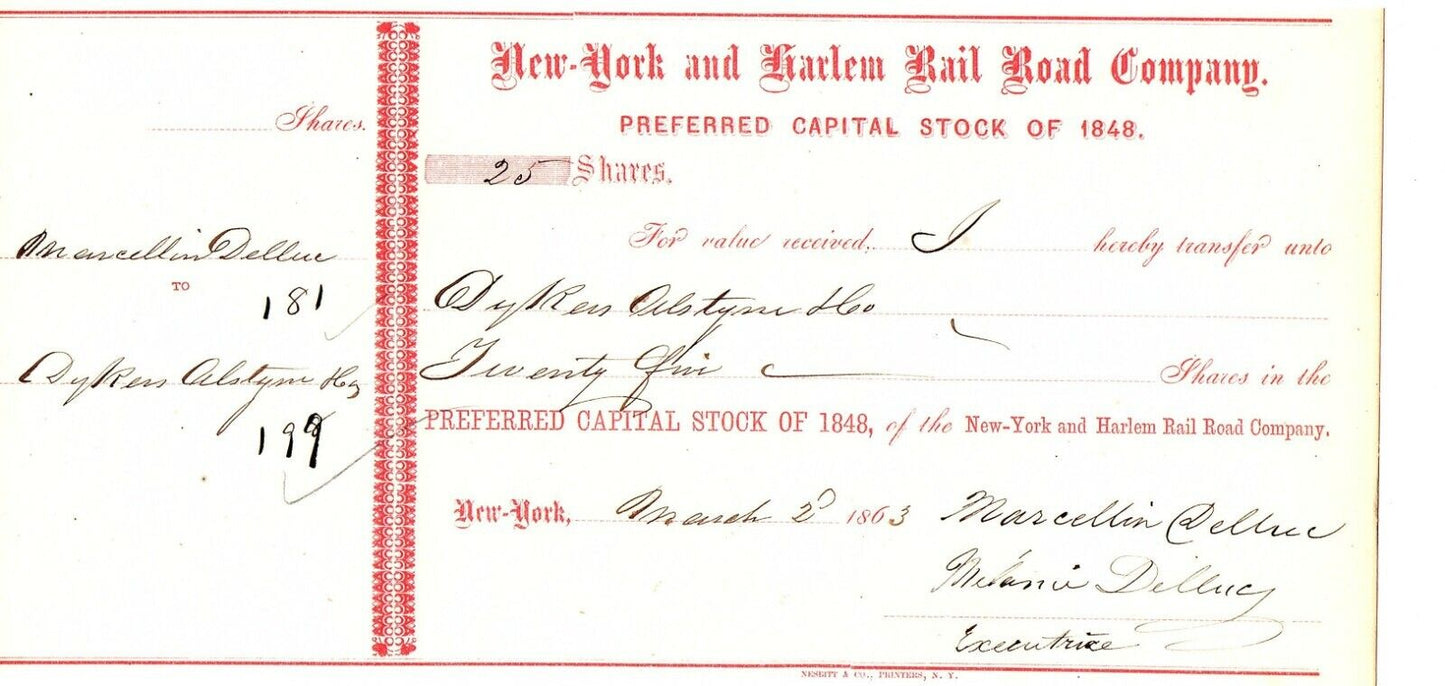 Shares.
Marcellin Delluc
TO
181
Dykers Alstyne & Co
199
New-York and Harlem Rail Road Company.
PREFERRED CAPITAL STOCK OF 1848.
25 Shares.
For value received, I hereby transfer unto
Dykers Alstyne & Co
Twenty five Shares in the
PREFERRED CAPITAL STOCK OF 1848, of the New-York and Harlem Rail Road Company.
New-York, March 2d 1863 Marcellin Delluc
Mélanie Delluc
Executrice
NESBITT & CO., PRINTERS, N. Y.